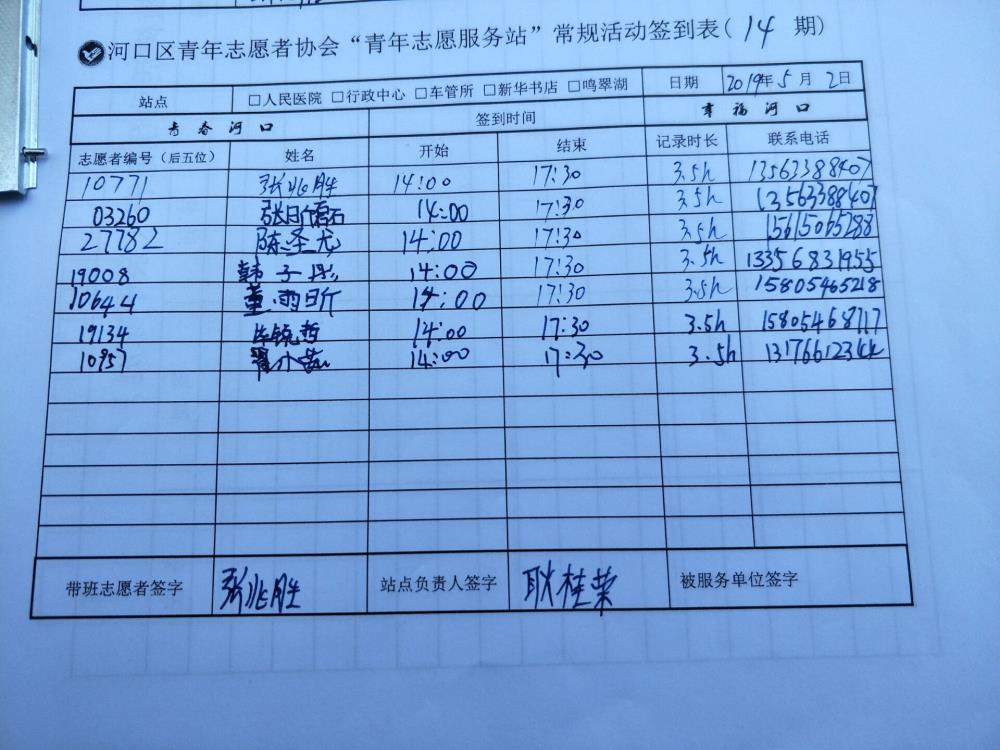 河口区青年志愿者协会“青年志愿服务站”常规活动签到表(14 期)
站点 □人民医院 □行政中心 □车管所 □新华书店 □鸣翠湖 日期 2019年5月2日
青春河口 签到时间 幸福河口
志愿者编号（后五位） 姓名 开始 结束 记录时长 联系电话
10771 张兆胜 14:00 17:30 3.5h 13563388407
03260 14:00 17:30 3.5h 13563388407
27782 陈圣尤 14:00 17:30 3.5h 15615065288
19008 韩子彤 14:00 17:30 3.5h 13356831955
10644 董雨昕 14:00 17:30 3.5h 15805465218
19134 毕锐哲 14:00 17:30 3.5h 15805468717
10957 14:00 17:30 3.5h 13176612344
带班志愿者签字 张兆胜 站点负责人签字 耿桂荣 被服务单位签字